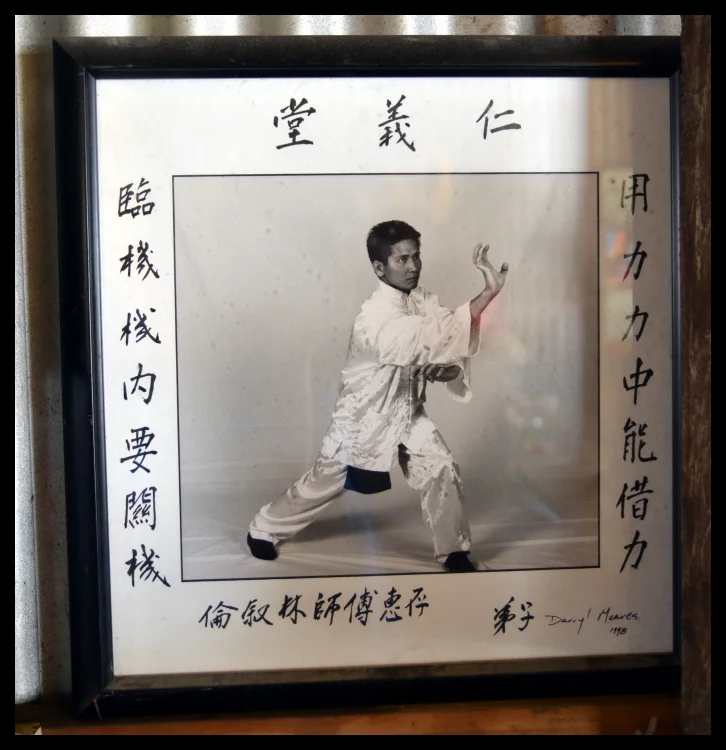 仁義堂
用力力中能借力
臨機機内要關機
倫叙林師傅惠存
弟子 Darryl Meaves.
1998